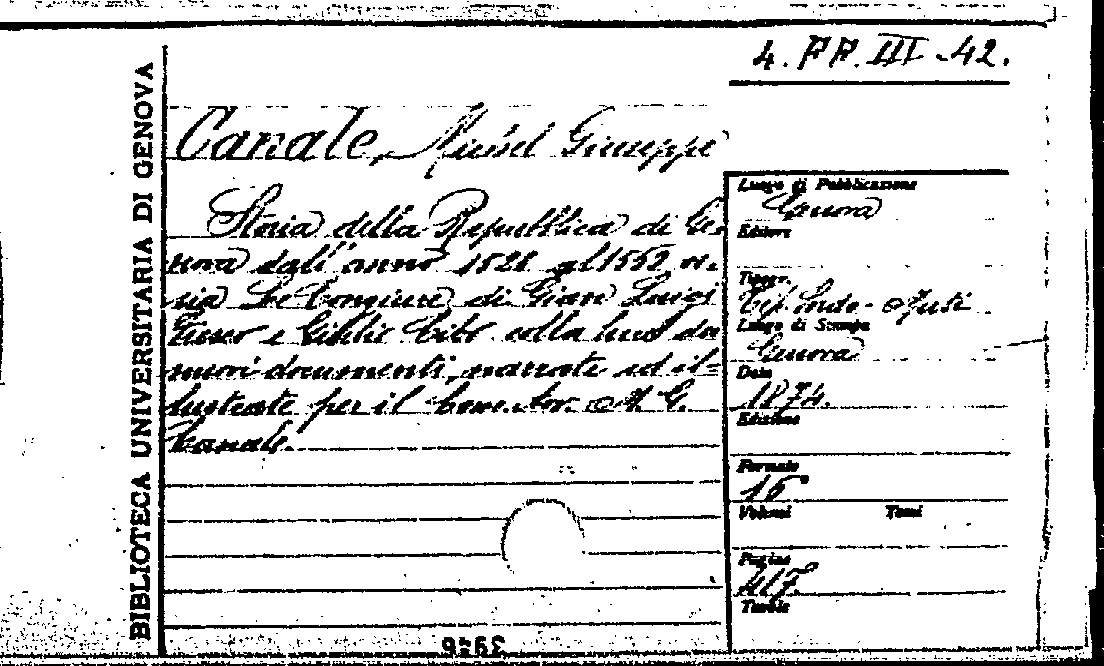 4. FF. III. 42.
BIBLIOTECA UNIVERSITARIA DI GENOVA
Canale, Michel Giuseppe
Storia della Repubblica di Ge-
nova dall'anno 1528 al 1552 os-
sia Le Congiure di Gian Luigi
Fiesco e Giulio Cibo colla luce dei
nuovi documenti, narrate ed il-
lustrate per il Comm. Avv. M. G.
Canale.
Luogo di Pubblicazione
Genova
Editore
Tipogr.
Tip.
Luogo di Stampa
Genova
Data
1874.
Edizione
Formato
16°
Volumi Tomi
Pagine
417.
Tavole